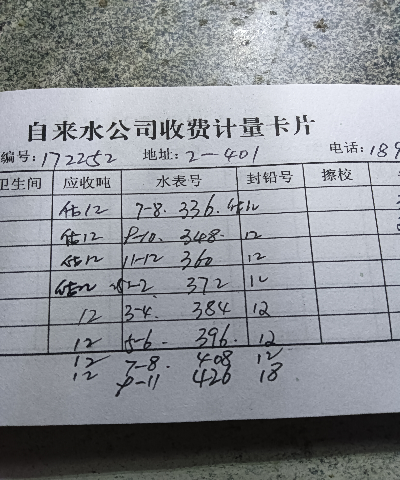 自来水公司收费计量卡片
编号:172252 地址:2-401 电话:189
卫生间 应收吨 水表号 封铅号 擦校
估12 7-8. 336. 估12
估12 9-10. 348. 12
估12 11-12 360 12
估12 -2 372 12
12 3-4. 384 12
12 5-6. 396. 12
12 7-8. 408 12
12 9-11 426 18